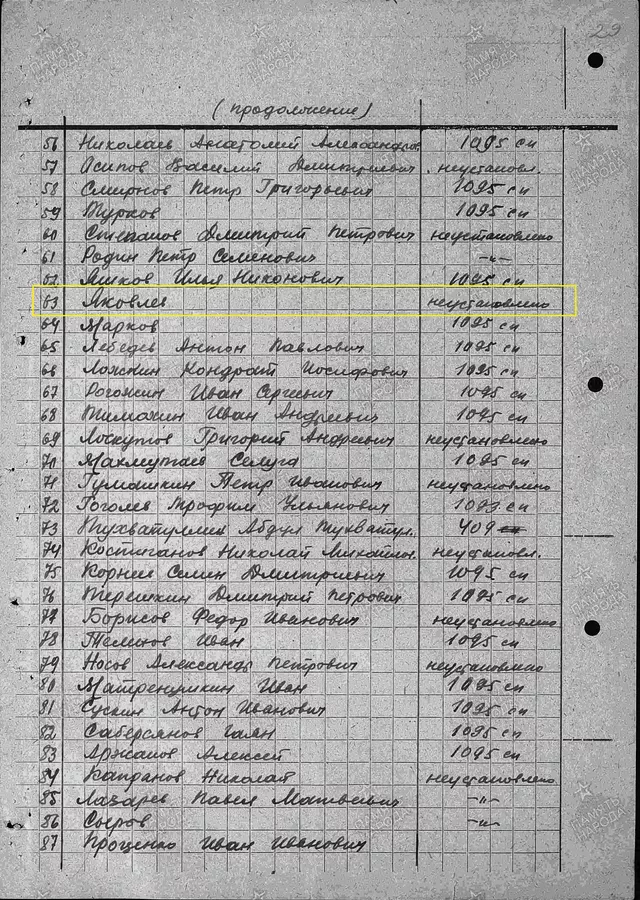 29
(продолжение)
56 Николаев Анатолий Александров. 1095 сп
57 Осипов Василий Дмитриевич неустановл.
58 Смирнов Петр Григорьевич 1095 сп
59 Турков 1095 сп
60 Степанов Дмитрий Петрович неустановлено
61 Родин Петр Семенович -"-
62 Яшков Илья Никонович 1095 сп
63 Яковлев неустановлено
64 Марков 1095 сп
65 Лебедев Антон Павлович 1095 сп
66 Ложкин Кондрат Иосифович 1095 сп
67 Рогожин Иван Сергеевич 1095 сп
68 Тимохин Иван Андреевич 1095 сп
69 Лоскутов Григорий Андреевич неустановлено
70 1095 сп
71 Гумашкин Петр Иванович неустановлено
72 Гоголев Трофим Ульянович 1095 сп
73 Абдул 409
74 Николай Михайлов. неустановл.
75 Корнев Семен Дмитриевич 1095 сп
76 Терешкин Дмитрий Петрович 1095 сп
77 Борисов Федор Иванович неустановлено
78 Иван 1095 сп
79 Носов Александр Петрович неустановлено
80 Матренушкин Иван 1095 сп
81 Сускин Антон Иванович 1095 сп
82 1095 сп
83 Аржанов Алексей 1095 сп
84 Капранов Николай неустановлено
85 Лазарев Павел Матвеевич -"-
86 Сыров -"-
87 Проценко Иван Иванович
ПАМЯТЬ НАРОДА